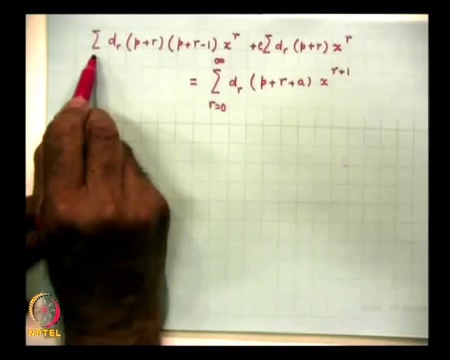 Σ dᵣ (p+r) (p+r-1) xʳ + c Σ dᵣ (p+r) xʳ
= Σ_{r=0}^{∞} dᵣ (p+r+a) x^{r+1}
NPTEL